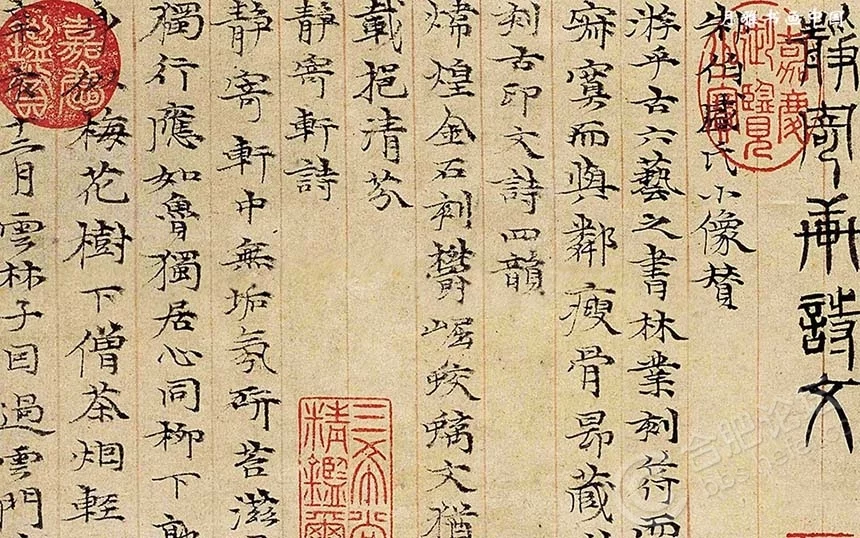 靜寄軒詩文
朱伯盛氏小像賛
游乎古六藝之書林業刻符而
寂寞而與鄰瘦骨昻藏
刻古印文詩四韻
煒煌金石刻欝崛蛟螭文猶
載挹清芬
靜寄軒詩
靜寄軒中無垢氛研苔滋
獨行應如魯獨居心同柳下
梅花樹下僧茶烟輕
十二月雲林子因過雲門
嘉慶御覽
三希堂精鑑璽
月雅书画中国
合肥论坛